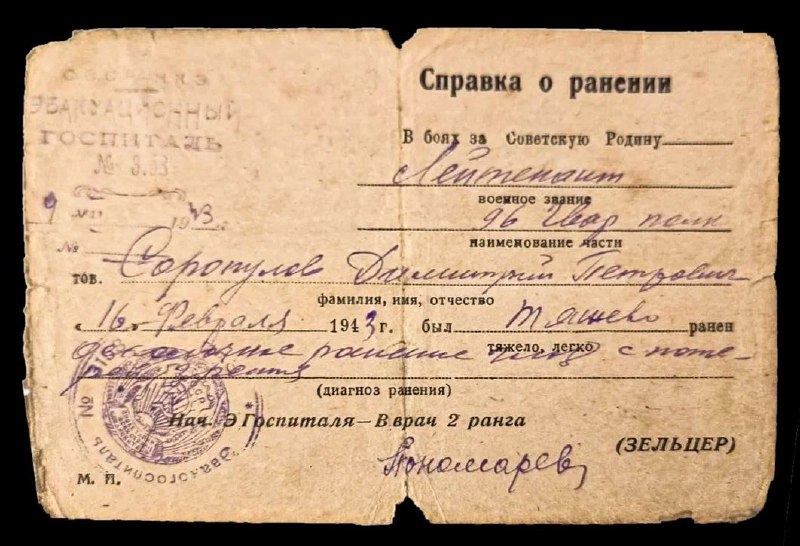 ЭВАКУАЦИОННЫЙ
ГОСПИТАЛЬ
Справка о ранении
В боях за Советскую Родину
Лейтенант
военное звание
96 Гвар полк
наименование части
тов. Соропулов Димитрий Петрович
фамилия, имя, отчество
„16„ Февраля 1943 г. был тяжело ранен
тяжело, легко
ранение с поте-
(диагноз ранения)
Нач. Э Госпиталя—Ввач 2 ранга
(ЗЕЛЬЦЕР)
Пономарев
М. П.